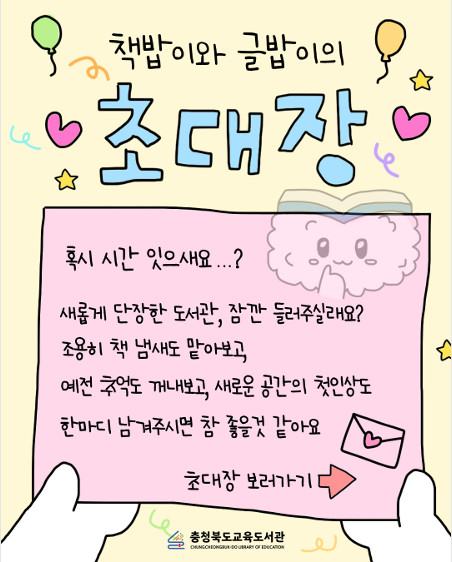 책밥이와 글밥이의
초대장
혹시 시간 잇으새요...?
새롭게 단장한 도서관, 잠깐 들러주실래요?
조용히 책 냄새도 맡아보고,
예전 추억도 꺼내보고, 새로운 공간의 첫인상도
한마디 남겨주시면 참 좋을것 같아요
초대장 보러가기
충청북도교육도서관
CHUNGCHEONGBUK-DO LIBRARY OF EDUCATION